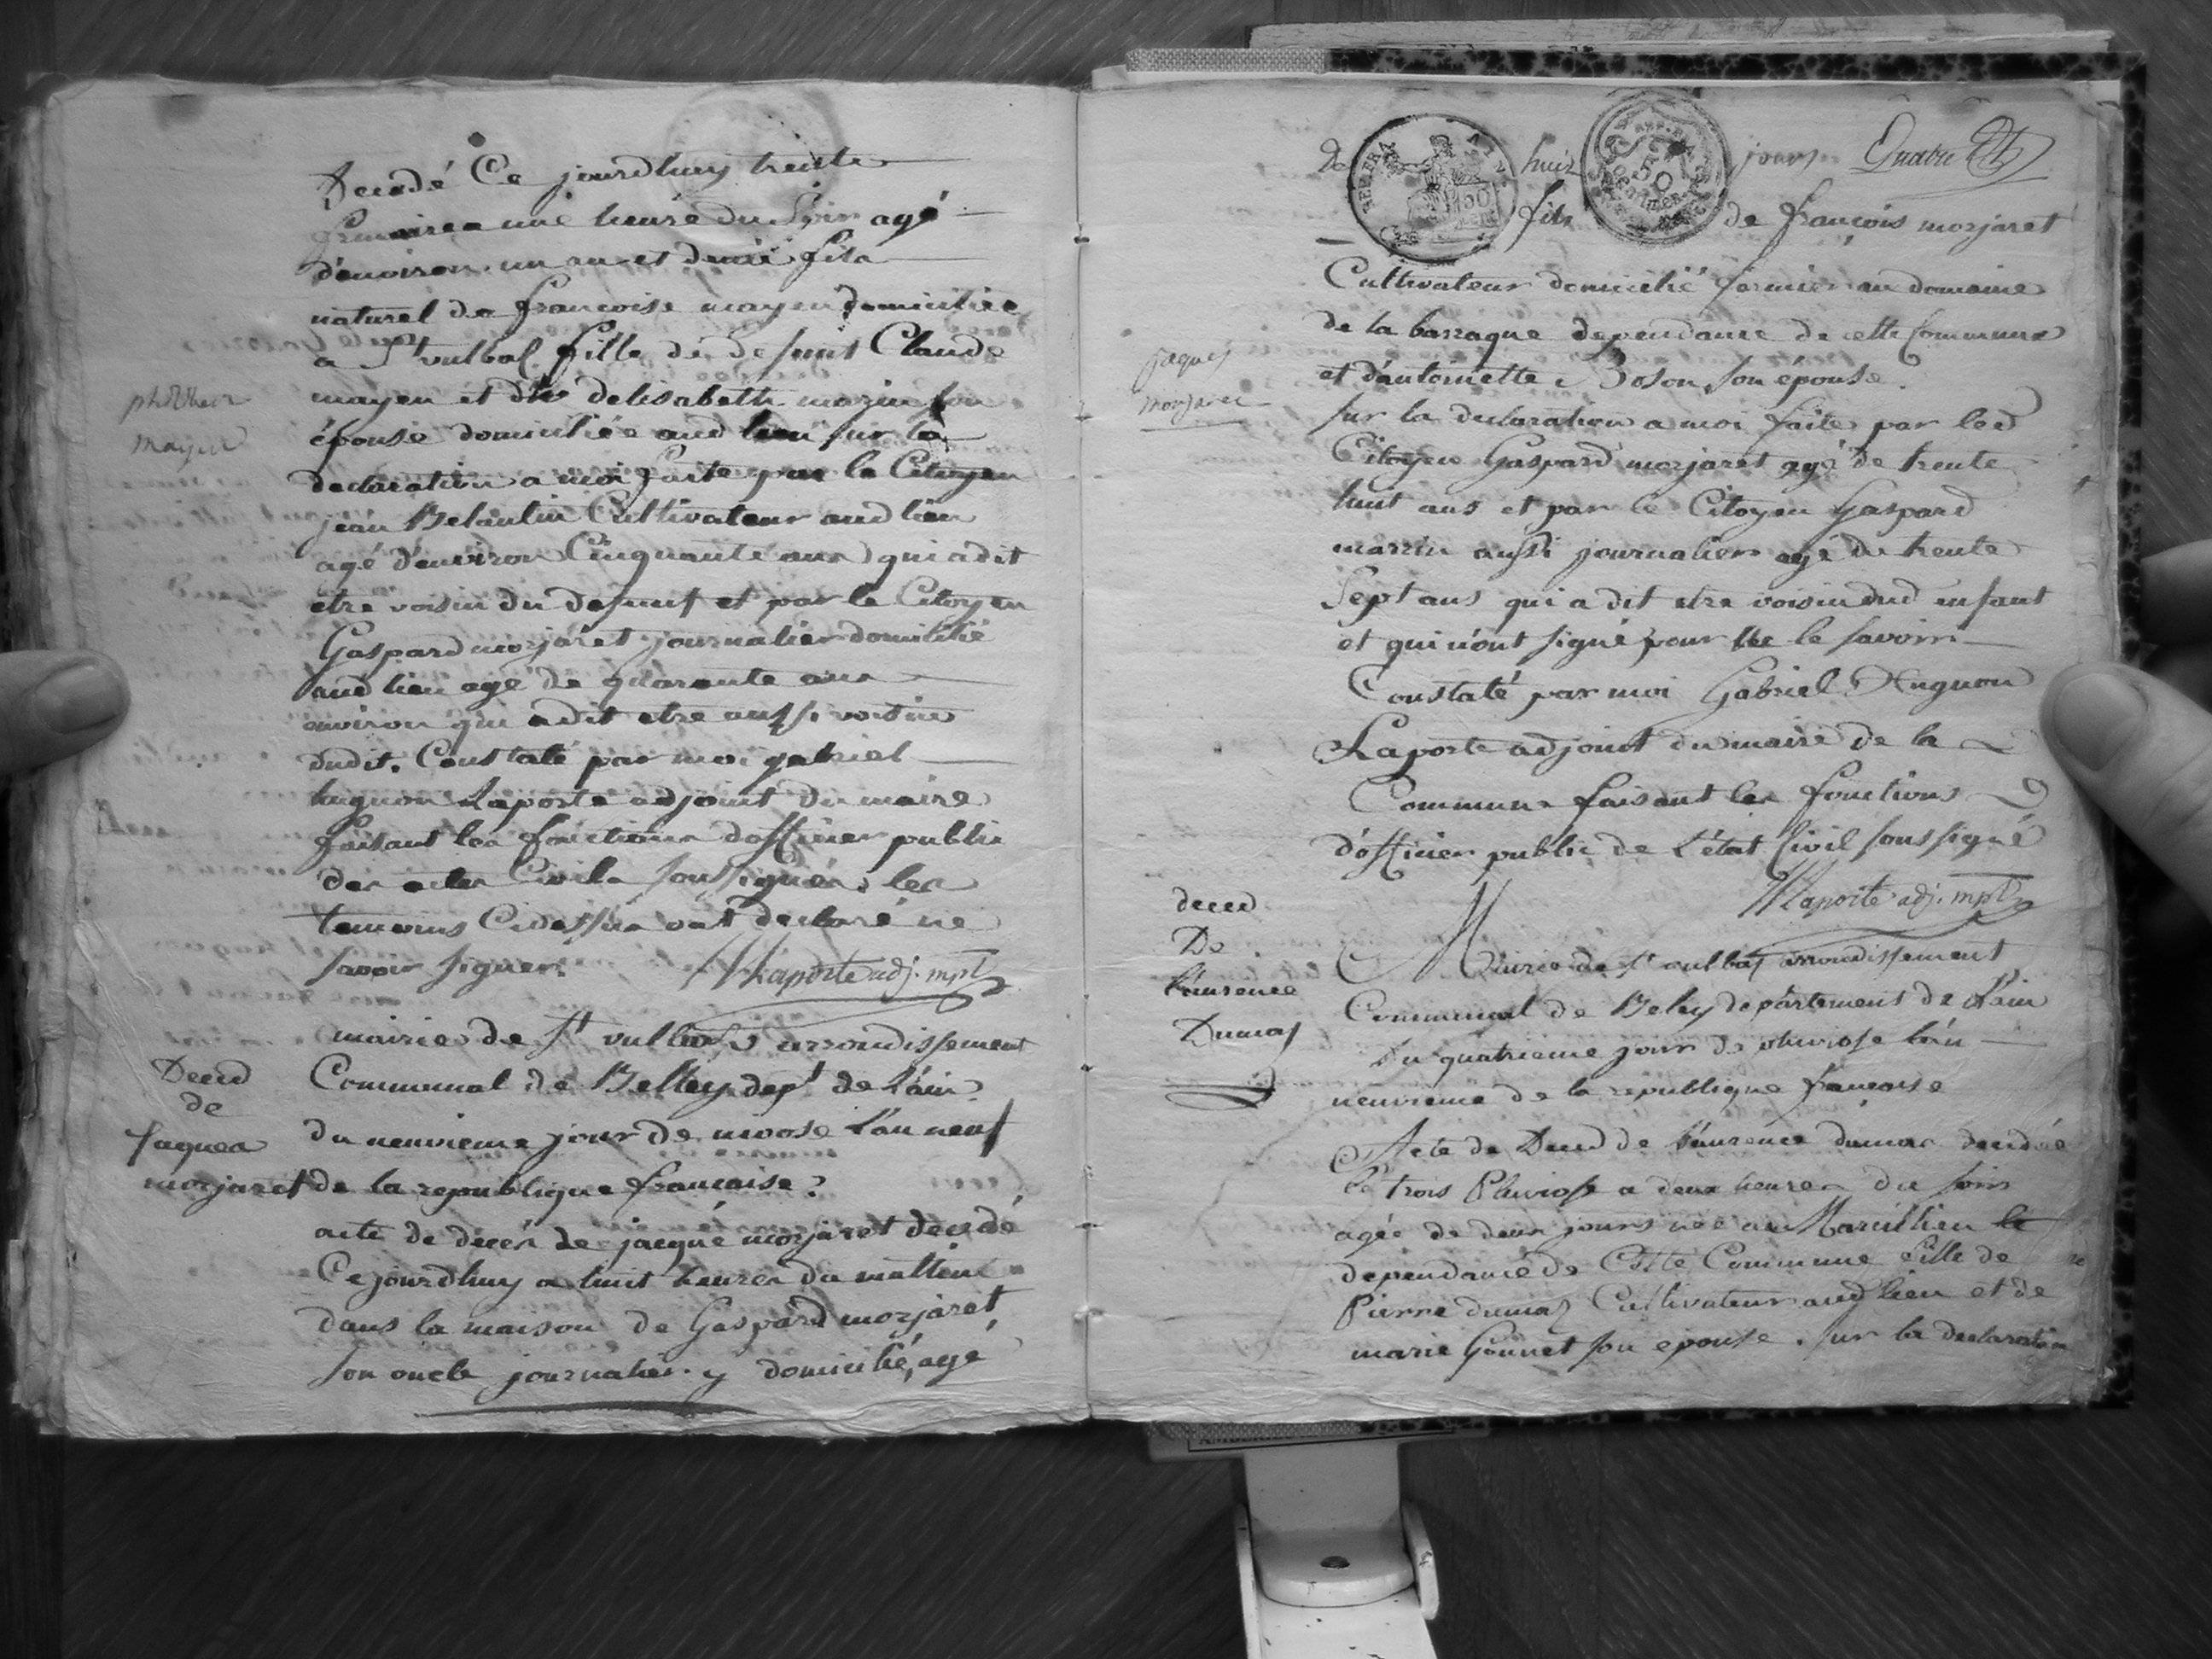 Decedé Ce jourdhuy trente
frimaire a une heure du Soir agé
d'environ un an et demie fils
naturel de francoise mayen domiciliée
a St vulbal fille de defunt Claude
mayen et delisabeth mazin son
épouse domiciliée aud lieu sur la
declaration a moi faite par le Citoyen
jean Belantin Cultivateur aud lieu
agé d'environ Cinquante ans qui a dit
etre voisin du defunt et par le Citoyen
Gaspard morjaret journalier domicilié
aud lieu agé de quarante ans
environ qui a dit etre aussi voisin
dudit. Constaté par moi gabriel
hugnon Laporte adjoint du maire
faisant les fonctions dofficier public
des actes Civils soussigner, les
temoins Cidessus ont declaré ne
savoir signer.
HLaporte adj. mpl
mayen
mairie de St vulbas arrondissement
Communal de Belley dept de L'ain.
du neuvieme jour de nivose L'an neuf
de la republique francaise.
acte de decés de jacque morjaret decedé
Ce jourdhuy a huit heures du mattin
dans la maison de Gaspard morjaret
son oncle journalier y domicilié, agé
Deced
de
Jaques
morjaret
de huit jours Quatre
fils de francois morjaret
Cultivateur domicilié fermier au domaine
de la barraque dependance de cette Commune
et d'antoinette Boson son épouse.
sur la declaration a moi faite par led
Citoyen Gaspard morjaret agé de trente
huit ans et par le Citoyen Gaspard
marrin aussi journalier agé de trente
Sept ans qui a dit etre voisin dud enfant
et qui n'ont signé pour ne le savoir
Constaté par moi Gabriel Hugnon
Laporte adjoint du maire de la
Commune faisant les fonctions
d'officier public de L'état Civil soussigné
HLaporte adj. mpl
jaques
morjaret
Mairie de St vulbas arrondissement
Communal de Beley departement de L'ain
Du quatrieme jour de pluviose L'an
neuvieme de la republique francaise
Acte de Deced de Laurence dumas decedée
Le trois Pluviose a deux heures du soir
agée de deux jours née au Marcillieu le
dependance de Cette Commune fille de
Pierre dumas Cultivateur aud lieu et de
marie Gonnet son epouse. sur la declaration
deced
De
Laurence
Dumas
50
REP. FRA